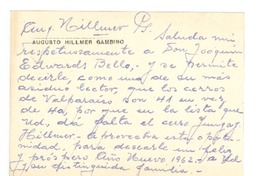 Aug. Hillmer G.
AUGUSTO HILLMER GAMBINO
Saluda muy
respetuosamente a Don Joaquín
Edwards Bello, - y se permite
decirle, como uno de su más
asiduo lector, que los cerros
de Valparaíso son 41 en vez
de 40, por que en la lista que
Ud. dió falta el cerro Yungay
Hillmer - aprovecha esta oportu-
nidad, para desearle un feliz
y próspero Año Nuevo 1962 - a Ud
y su distinguida familia. -